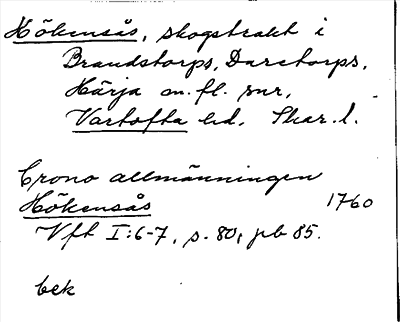 Hökensås, skogstrakt i
Brandstorps, Daretorps,
Härja m. fl. snr,
Vartofta hd, Skar. l.
Crono allmänningen
Hökensås 1760
Vft I:6-7, s. 80, pb 85.
bek